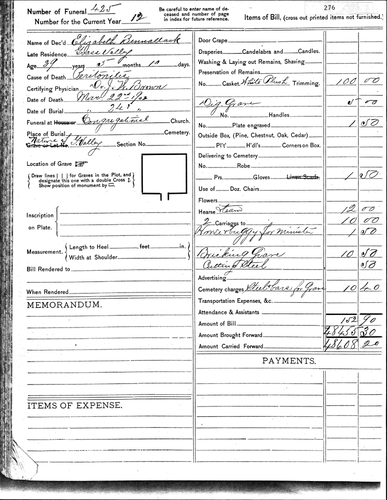 Number of Funeral 425
Number for the Current Year 12
Be careful to enter name of deceased and number of page in index for future reference.
276
Items of Bill, (cross out printed items not furnished.)
Name of Dec'd Elizabeth
Late Residence Grass Valley
Age 39 years 5 months 10 days
Cause of Death Peritonitis
Certifying Physician Dr. J. W. Brown
Date of Death
Date of Burial " 24
Funeral at House Congregational Church.
Place of Burial Cemetery.
Native of G. Valley Section No.
Location of Grave
Draw lines ( ) for Graves in the Plot, and
designate this one with a double Cross
Show position of monument by
Inscription
on Plate.
Measurement. Length to Heel feet in.
Width at Shoulder
Bill Rendered to
When Rendered
MEMORANDUM.
ITEMS OF EXPENSE.
Door Crape
Draperies Candelabras and Candles.
Washing & Laying out Remains, Shaving.
Preservation of Remains
No. Casket White Plush Trimming. 100 00
Dig Grave 5 00
No. Handles
No. Plate engraved 1 50
Outside Box, (Pine, Chestnut, Oak, Cedar)
PIY H'dl's Corners on Box.
Delivering to
No. Robe
Prs. Gloves Linen Scarfs 1 50
Use of Doz. Chair
Flowers
Hearse Team 12 00
2 Carriages to 10 00
Horse & buggy for Minister 1 50
Bricking Grave 10 50
Cutting Steel 50
Advertising
Cemetery charges Steel bars for Grave 10 40
Transportation Expenses, &c.
Attendance & Assistants
Amount of Bill 152 90
Amount Brought Forward 48455 30
Amount Carried Forward 48608 20
PAYMENTS.